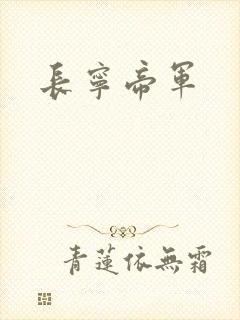 長寧帝軍
青蓮依無霜